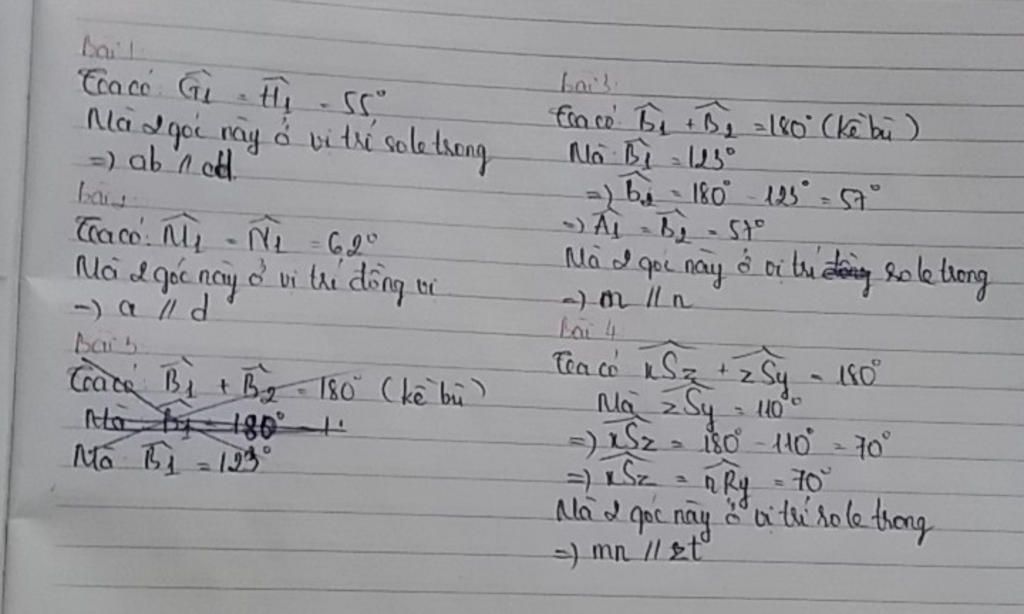 Bài 1:
Ta có: Ĝ1 = Ĥ1 = 55°
Mà 2 góc này ở vị trí so le trong
=> ab // cd
Bài 2:
Ta có: M̂1 = N̂1 = 62°
Mà 2 góc này ở vị trí đồng vị
=> a // d
Bài 3
Ta có: B̂1 + B̂2 = 180° (kề bù)
Mà B̂1 = 180° - 1
Mà B̂1 = 123°
Bài 3:
Ta có B̂1 + B̂2 = 180° (kề bù)
Mà B̂1 = 123°
=> B̂2 = 180° - 123° = 57°
=> Â1 = B̂2 = 57°
Mà 2 góc này ở vị trí đồng so le trong
=> m // n
Bài 4
Ta có xSz + zSy = 180°
Mà zSy = 110°
=> xSz = 180° - 110° = 70°
=> xSz = nRy = 70°
Mà 2 góc này ở vị trí so le trong
=> mn // zt